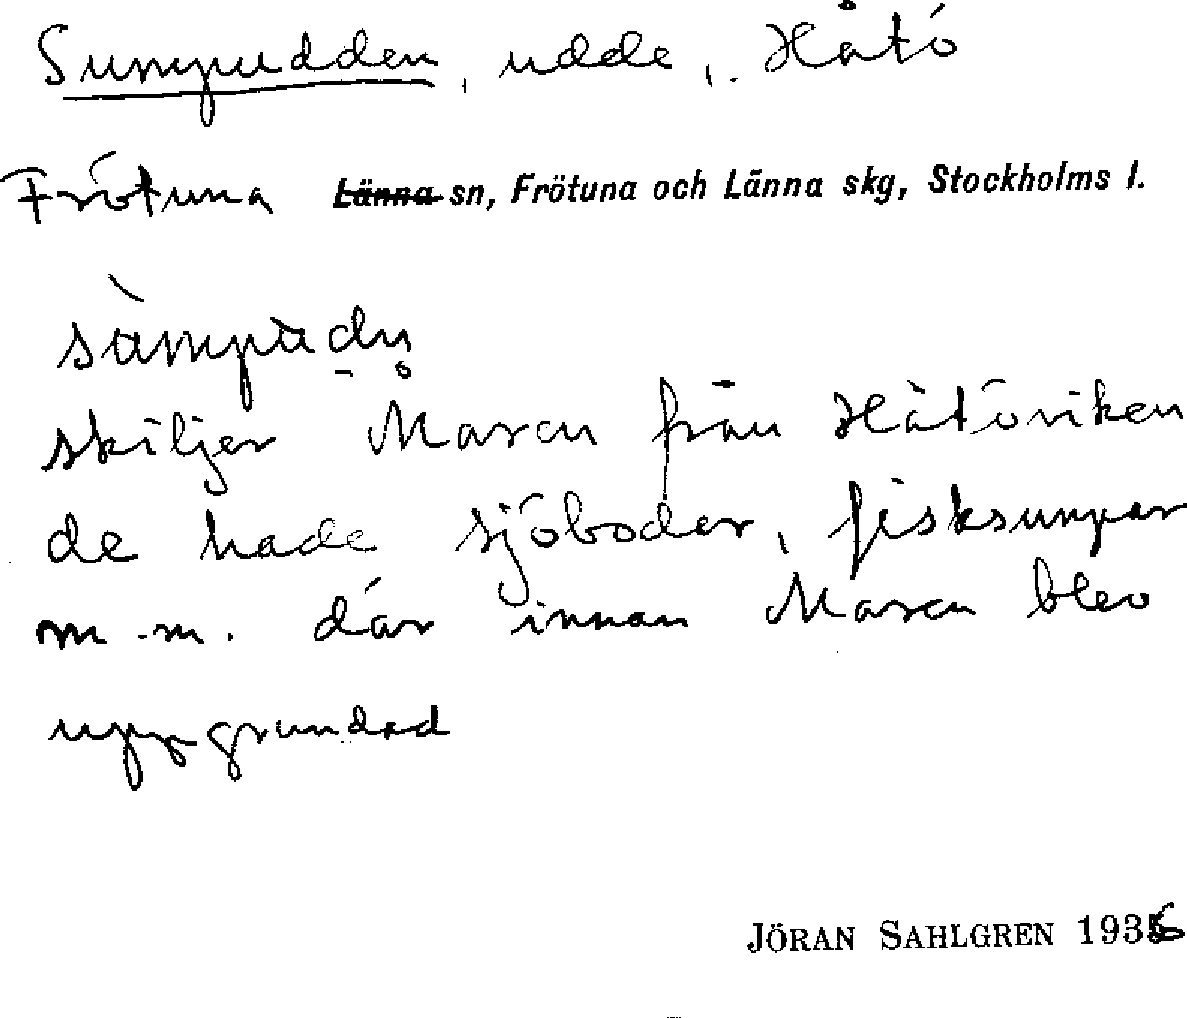 Sumpudden, udde, Håtö
Frötuna Länna sn, Frötuna och Länna skg, Stockholms l.
skiljer Maren från Håtöviken
de hade sjöboder, fisksumpar
m.m. där innan Maren blev
uppgrundad
JÖRAN SAHLGREN 1936